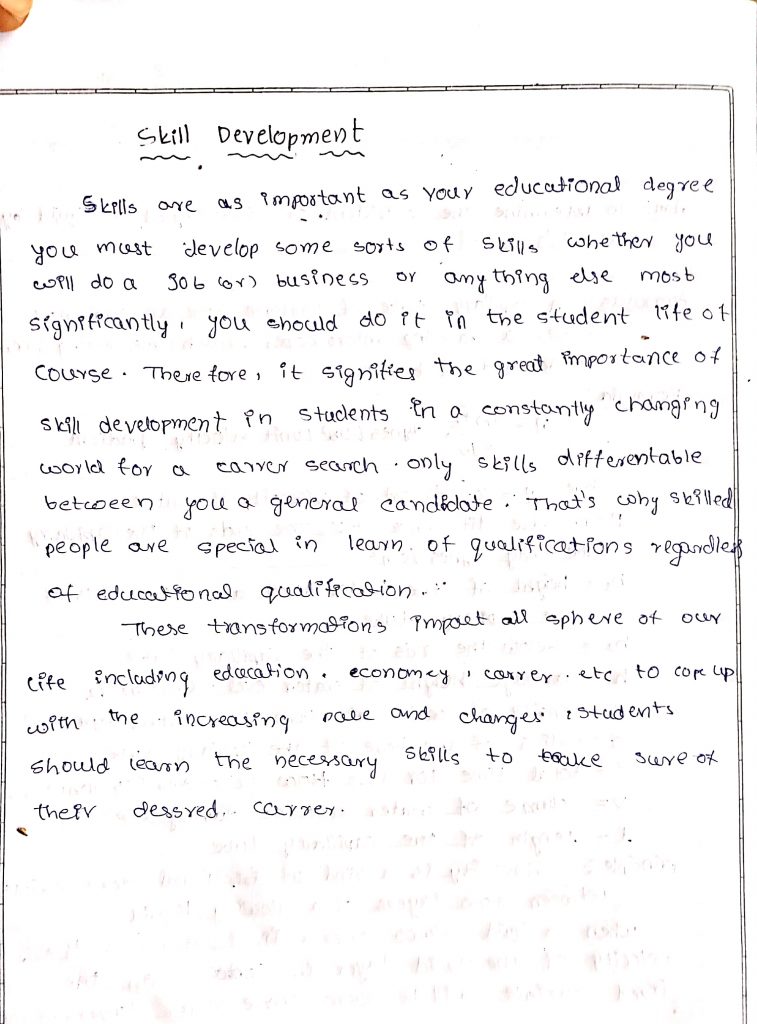 Skill Development
Skills are as important as your educational degree
you must develop some sorts of skills whether you
will do a Job (or) business or anything else most
significantly, you should do it in the student life of
course. Therefore, it signifies the great importance of
skill development in students in a constantly changing
world for a carrer search. only skills differentable
between you a general candidate. That's why skilled
people are special in learn. of qualifications regardless
of educational qualification..
These transformations impact all sphere of our
life including edacation, economcy, carrer. etc to cope up
with the increasing pace and changes. students
should learn the necessary skills to take sure of
their dessred.. carrer.